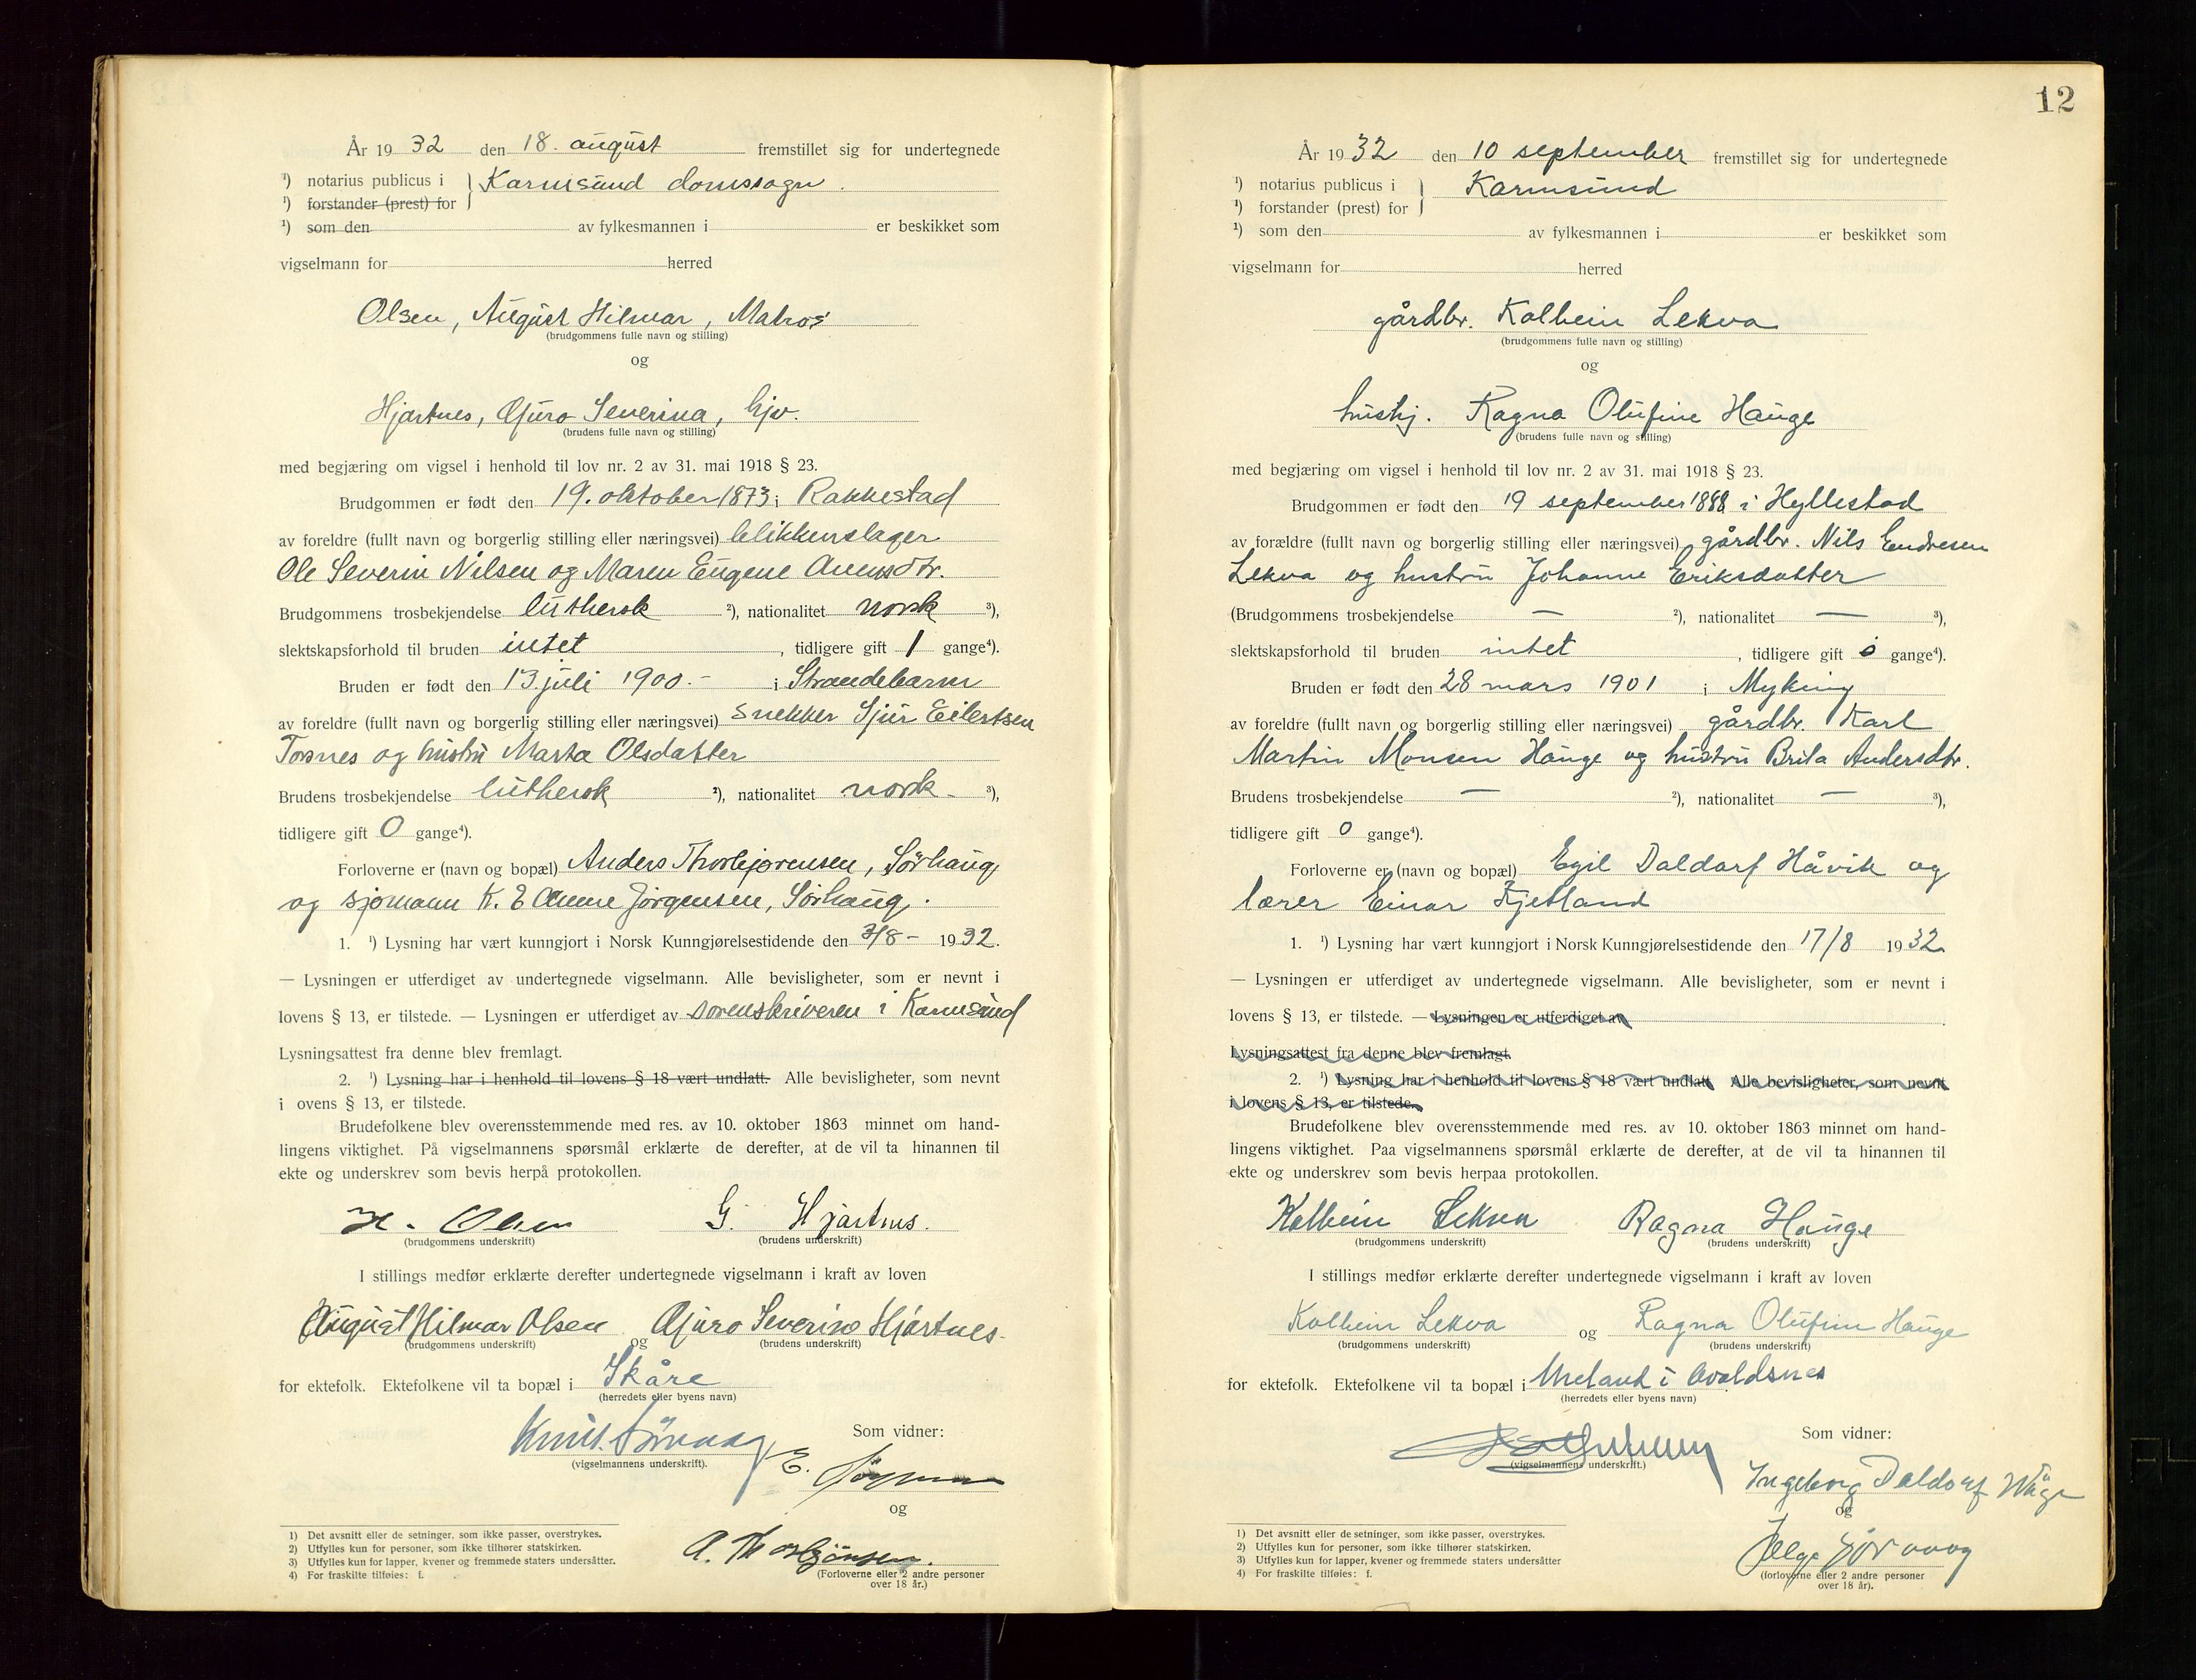 År 1932 den 18. august fremstillet sig for undertegnede
¹) notarius publicus i } Karmsund domssogn.
¹) forstander (prest) for
¹) som den av fylkesmannen i er beskikket som
vigselmann for herred
Olsen, August Hilmar, Matros
(brudgommens fulle navn og stilling)
og
Hjartnes, Guro Severina, hjv.
(brudens fulle navn og stilling)
med begjæring om vigsel i henhold til lov nr. 2 av 31. mai 1918 § 23.
Brudgommen er født den 19. oktober 1873 i Rakkestad
av foreldre (fullt navn og borgerlig stilling eller næringsvei) blikkenslager
Ole Severin Nilsen og Maren Eugene
Brudgommens trosbekjendelse luthersk ²), nationalitet norsk ³),
slektskapsforhold til bruden intet, tidligere gift 1 gange⁴).
Bruden er født den 13. juli 1900.- i Strandebarm
av foreldre (fullt navn og borgerlig stilling eller næringsvei) snekker Sjur Eilertsen
Tosnes og hustru Marta Olsdatter
Brudens trosbekjendelse luthersk ²), nationalitet norsk - ³),
tidligere gift 0 gange⁴).
Forloverne er (navn og bopæl) Anders Thorbjørensen, Sørhaug
og sjømann K. E Jørgensen, Sørhaug.
1. ¹) Lysning har vært kunngjort i Norsk Kunngjørelsestidende den 3/8 - 1932.
— Lysningen er utferdiget av undertegnede vigselmann. Alle bevisligheter, som er nevnt i
lovens § 13, er tilstede. — Lysningen er utferdiget av sorenskriveren i Karmsund
Lysningsattest fra denne blev fremlagt.
2. ¹) Lysning har i henhold til lovens § 18 vært undlatt. Alle bevisligheter, som nevnt
i ovens § 13, er tilstede.
Brudefolkene blev overensstemmende med res. av 10. oktober 1863 minnet om hand-
lingens viktighet. På vigselmannens spørsmål erklærte de derefter, at de vil ta hinannen til
ekte og underskrev som bevis herpå protokollen.
H. Olsen G. Hjartnes.
(brudgommens underskrift) (brudens underskrift)
I stillings medfør erklærte derefter undertegnede vigselmann i kraft av loven
August Hilmar Olsen og Guro Severine Hjartnes
(brudgommens underskrift) (brudens underskrift)
for ektefolk. Ektefolkene vil ta bopæl i Skåre
(herredets eller byens navn)
Som vidner:
Knut Sørvaag
(vigselmannens underskrift).
E. Jørgensen
og
A. Thorbjønsen.
(Forloverne eller 2 andre personer
over 18 år.)
1) Det avsnitt eller de setninger, som ikke passer, overstrykes.
2) Utfylles kun for personer, som ikke tilhører statskirken.
3) Utfylles kun for lapper, kvener og fremmede staters undersåtter.
4) For fraskilte tilføies: f.
12
År 1932 den 10 september fremstillet sig for undertegnede
¹) notarius publicus i } Karmsund
¹) forstander (prest) for
¹) som den av fylkesmannen i er beskikket som
vigselmann for herred
gårdbr. Kolbein Lekva
(brudgommens fulle navn og stilling)
og
hushj. Ragna Olufine Hauge
(brudens fulle navn og stilling)
med begjæring om vigsel i henhold til lov nr. 2 av 31. mai 1918 § 23.
Brudgommen er født den 19 september 1888 i Hyllestad
av forældre (fullt navn og borgerlig stilling eller næringsvei) gårdbr. Nils Endresen
Lekva og hustru Johanne Eriksdatter
(Brudgommens trosbekjendelse — ²), nationalitet — ³),
slektskapsforhold til bruden intet, tidligere gift 0 gange⁴).
Bruden er født den 28 mars 1901 i Myking
av foreldre (fullt navn og borgerlig stilling eller næringsvei) gårdbr. Karl
Martin Monsen Hauge og hustru Brita Andersdtr.
Brudens trosbekjendelse — ²), nationalitet — ³),
tidligere gift 0 gange⁴).
Forloverne er (navn og bopæl) Egil Daldorf Håvik og
lærer Einar Kjetland
1. ¹) Lysning har vært kunngjort i Norsk Kunngjørelsestidende den 17/8 1932
— Lysningen er utferdiget av undertegnede vigselmann. Alle bevisligheter, som er nevnt i
lovens § 13, er tilstede. — Lysningen er utferdiget av
Lysningsattest fra denne blev fremlagt.
2. ¹) Lysning har i henhold til lovens § 18 vært undlatt Alle bevisligheter, som nevnt
i lovens § 13, er tilstede.
Brudefolkene blev overensstemmende med res. av 10. oktober 1863 minnet om hand-
lingens viktighet. Paa vigselmannens spørsmål erklærte de derefter, at de vil ta hinannen til
ekte og underskrev som bevis herpaa protokollen.
Kolbein Lekva Ragna Hauge
(brudgommens underskrift) (brudens underskrift)
I stillings medfør erklærte derefter undertegnede vigselmann i kraft av loven
Kolbein Lekva og Ragna Olufine Hauge
(brudgommens underskrift) (brudens underskrift)
for ektefolk. Ektefolkene vil ta bopæl i Meland i Avaldsnes
(herredets eller byens navn)
Som vidner:
(vigselmannens underskrift.)
Ingeborg Daldorf Våge
og
Helge Sørvaag
(forloverne eller 2 andre personer
over 18 år).
1) Det avsnitt eller de setninger, som ikke passer, overstrykes.
2) Utfylles kun for personer, som ikke tilhører statskirken.
3) Utfylles kun for lapper, kvener og fremmede staters undersåtter
4) For fraskilte tilføies: f.